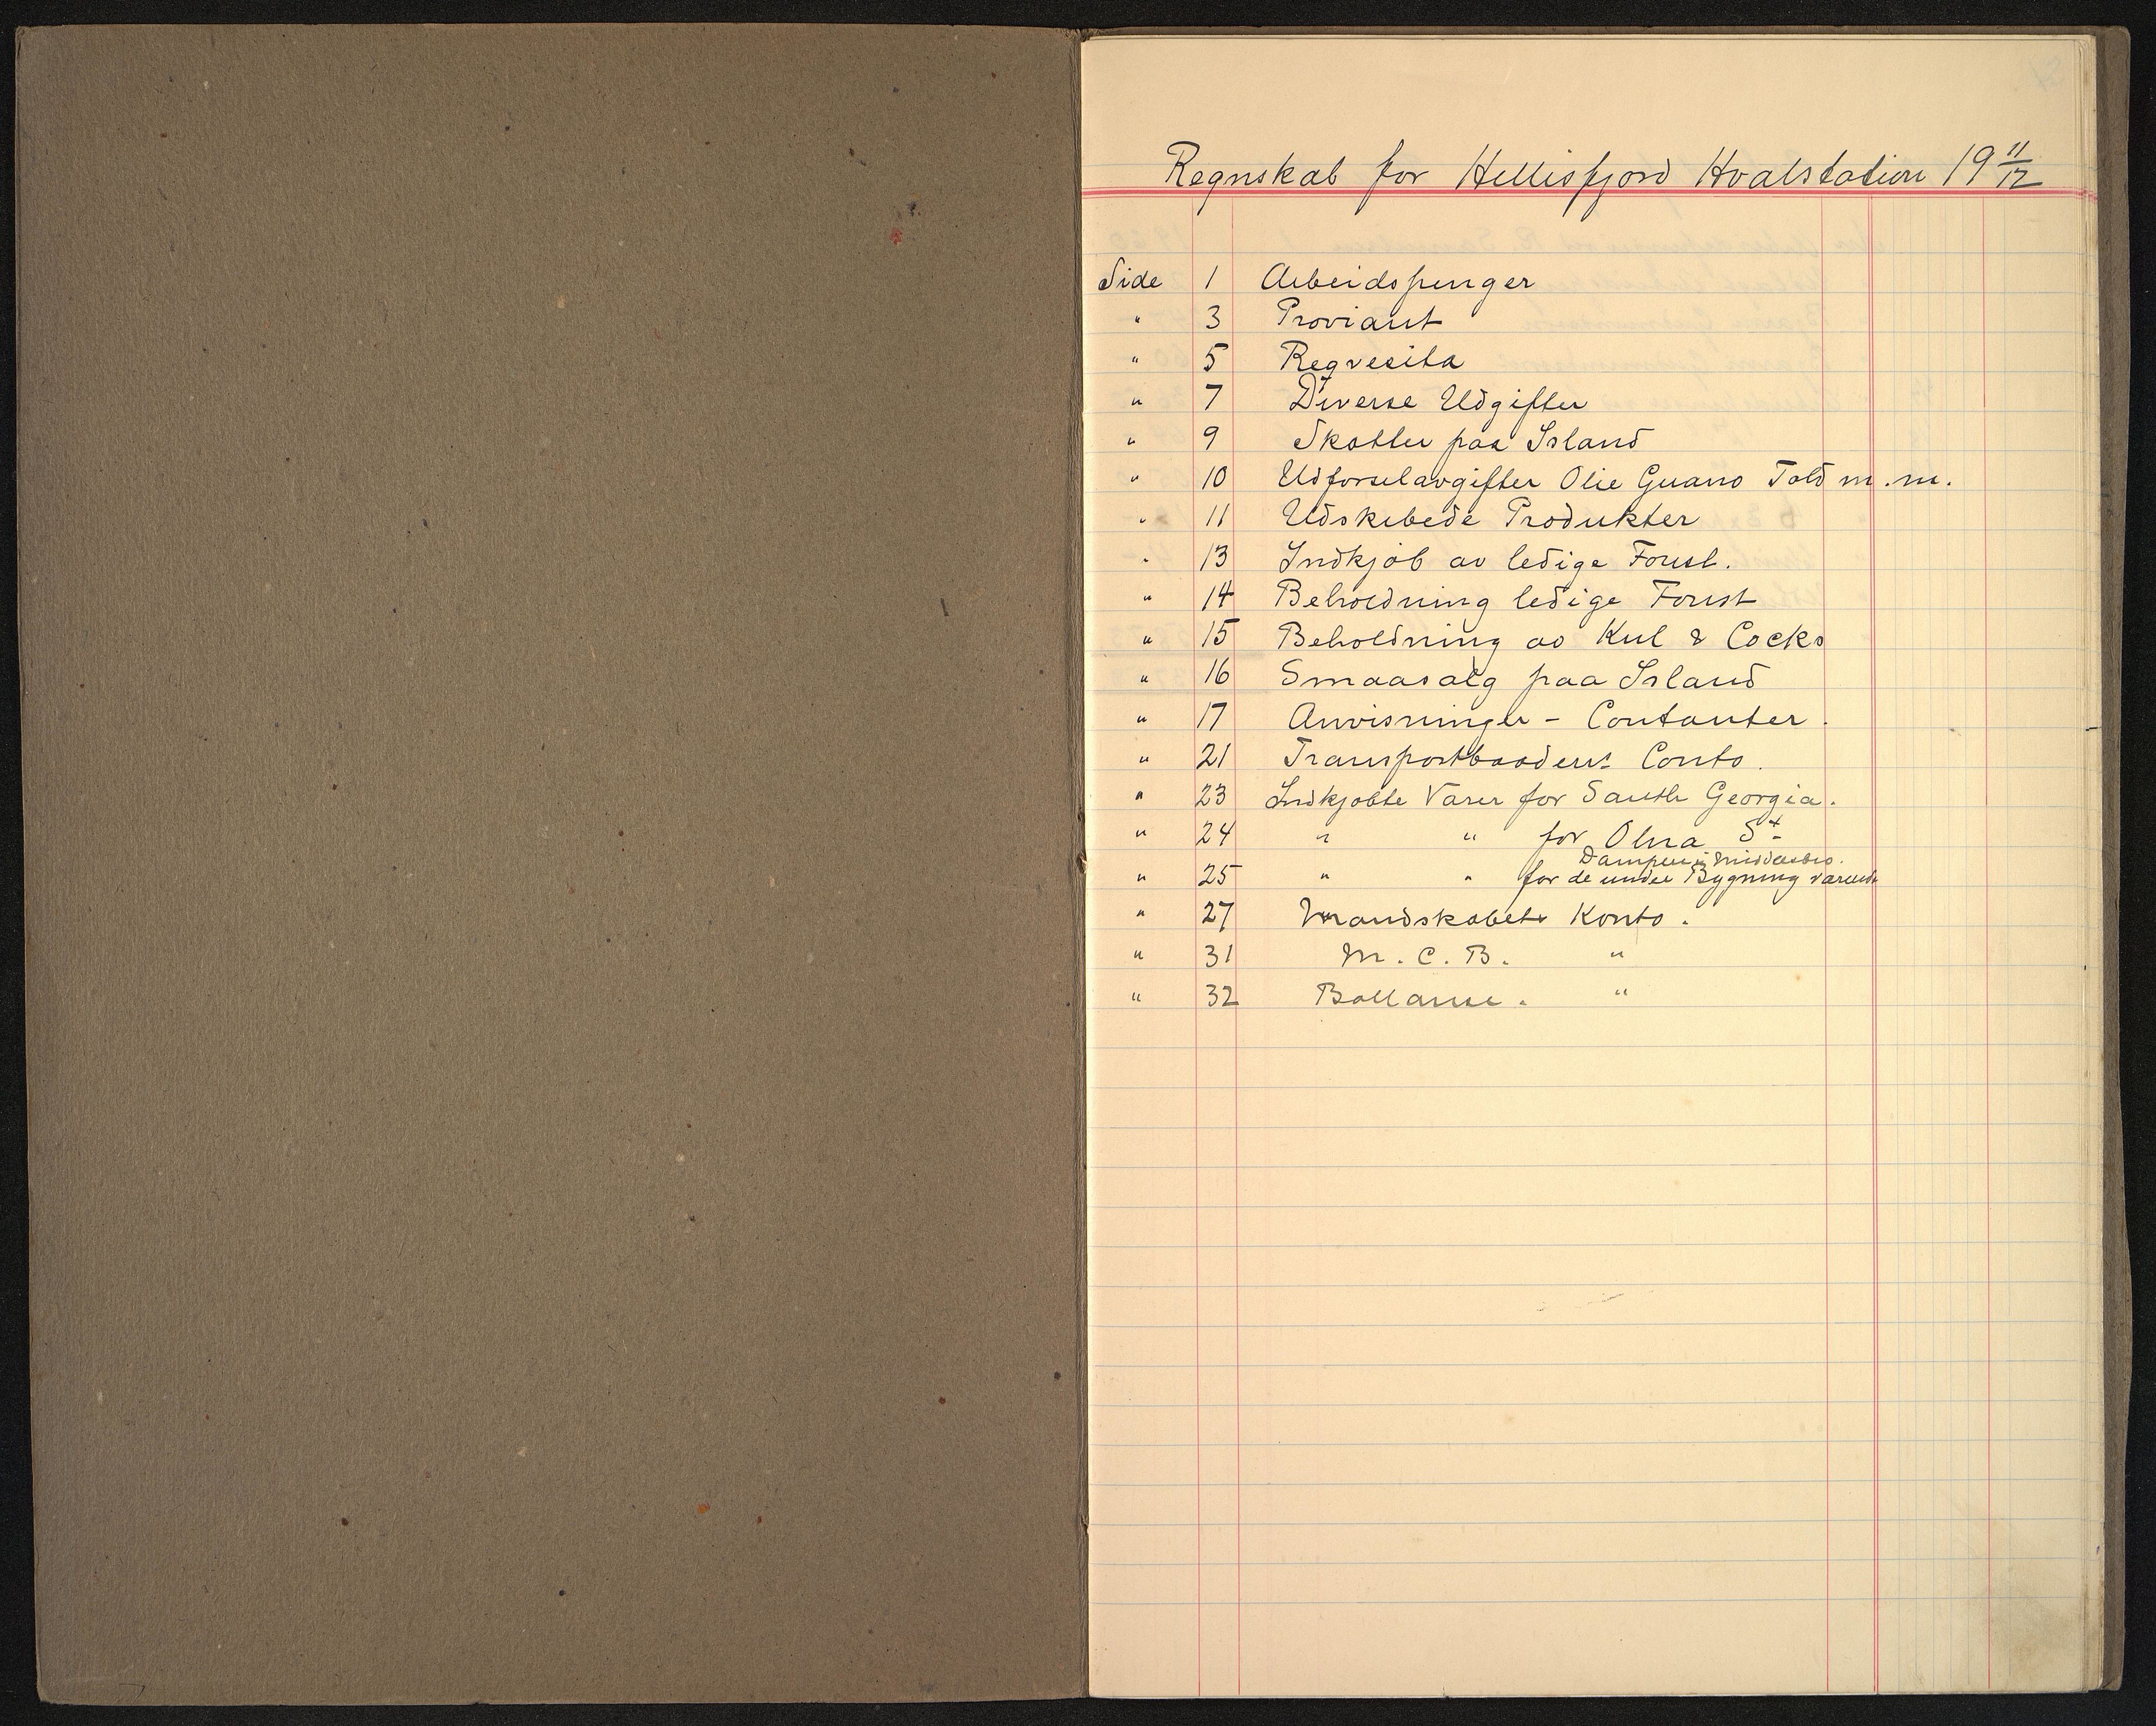 Regnskab for Hellisfjord Hvalstation 19 11/12
Side 1 Arbeidspenger
" 3 Proviant
" 5 Reqvesita
" 7 Diverse Udgifter
" 9 Skatter paa Island
" 10 Udforselavgifter Olie Guano Told m.m.
" 11 Udskibede Produkter
" 13 Indkjøb av ledige Foust.
" 14 Beholdning ledige Foust
" 15 Beholdning av Kul & Cocks
" 16 Smaasalg paa Island
" 17 Anvisninger - Contanter.
" 21 Transportbaadens Conto.
" 23 Indkjobte Varer for South Georgia.
" 24 " " for Olna St
Dampere i Middelsbro.
" 25 " " for de under Bygning værende
" 27 Mandskabets Konto.
" 31 M. C. B. "
" 32 Ballanse. "